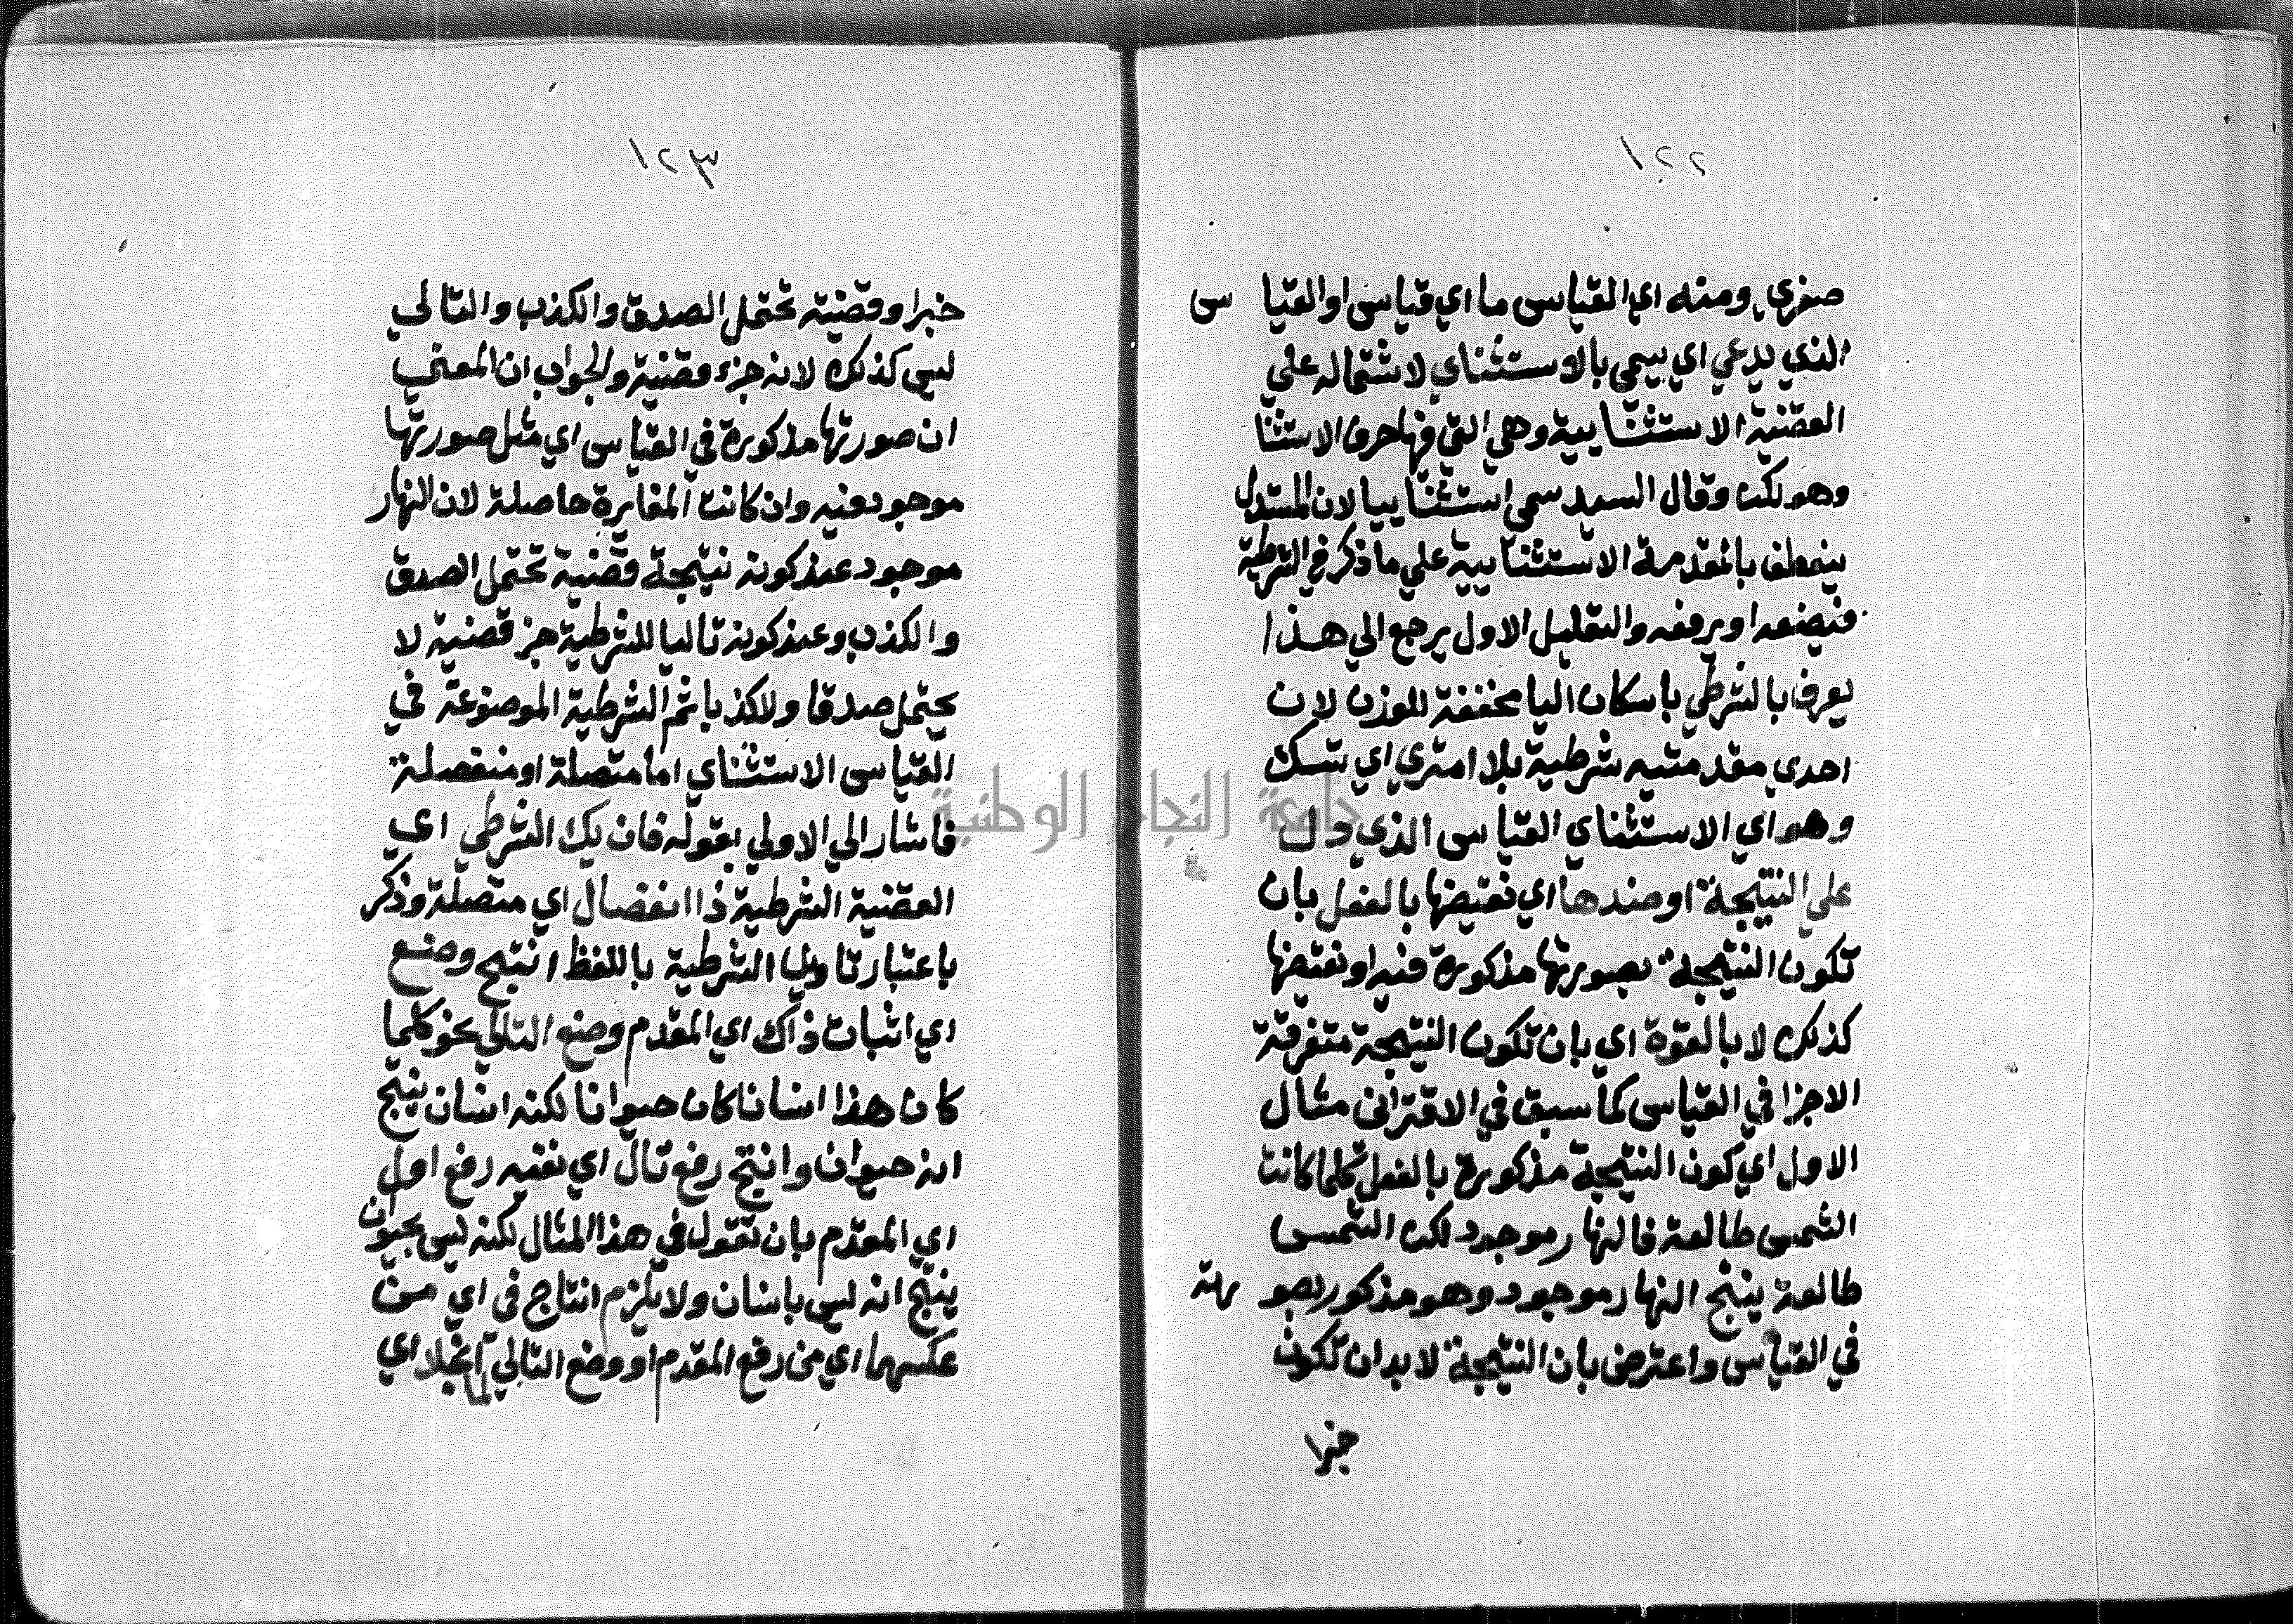 ١٢٢
صغري ومنه اي القياس ما اي قياس او القياس
الذي يدعي اي يسمي بالاستثناي لاشتماله علي
القضية الاستثنايية وهي التي فيها حرف الاستثنا
وهو لكن وقال السيد سمي استثناييا لان المستدل
ينعطف بالمقدمة الاستثنايية علي ما ذكر في الشرطية
فيضعه او يرفعه والتعليل الاول يرجع الي هذا
يعرف بالشرطي باسكان اليا مخففة للوزن لان
احدي مقدمتيه شرطية بلا امتري اي شك
وهو اي الاستثناي القياس الذي دل
علي النتيجة او ضدها اي نقيضها بالفعل بان
تكون النتيجة بصورتها مذكورة فيه او نقيضها
كذلك لا بالقوة اي بان تكون النتيجة متفرقة
الاجزا في القياس كما سبق في الاقتراني مثال
الاول اي كون النتيجة مذكورة بالفعل كلما كانت
الشمس طالعة فالنهار موجود لكن الشمس
طالعة ينتج النهار موجود وهو مذكور بصورته
في القياس واعترض بان النتيجة لا بد ان تكون
خبرا
١٢٣
خبرا وقضية تحتمل الصدق والكذب والتالي
ليس كذلك لانه جزء قضية والجواب ان المعني
ان صورتها مذكورة في القياس اي مثل صورتها
موجود فيه وان كانت المغايرة حاصلة لان النهار
موجود عند كونه نتيجة قضية تحتمل الصدق
والكذب وعند كونه تاليا للشرطية جز قضية لا
يحتمل صدقا ولا كذبا ثم الشرطية الموضوعة في
القياس الاستثناي اما متصلة او منفصلة
فاشار الي الاولي بقوله فان يك الشرطي اي
القضية الشرطية ذا اتصال اي متصلة وذكر
باعتبار تاويل الشرطية باللفظ انتج وضع
اي اثبات ذاك اي المقدم وضع التالي نحو كلما
كان هذا انسانا كان حيوانا لكنه انسان ينتج
انه حيوان وانتج رفع تال اي نفيه رفع اول
اي المقدم بان تقول في هذا المثال لكنه ليس بحيوان
ينتج انه ليس بانسان ولا يلزم انتاج في اي من
عكسهما اي من رفع المقدم او وضع التالي لما انجلا اي
جامعة النجاح الوطنية